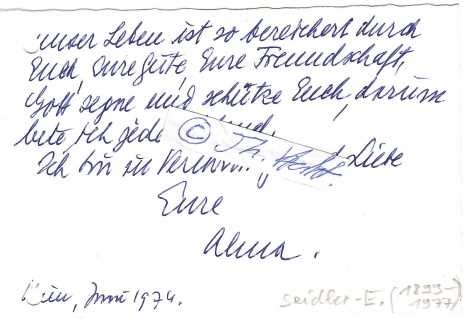 unser Leben ist so bereichert durch
Euch, Eure Güte, Eure Freundschaft,
Gott segne und schütze Euch, darum
bete ich jede
Ich bin in Liebe
Eure
Alma.
Wien, Juni 1974.
Seidler-E. (1899-
1977)